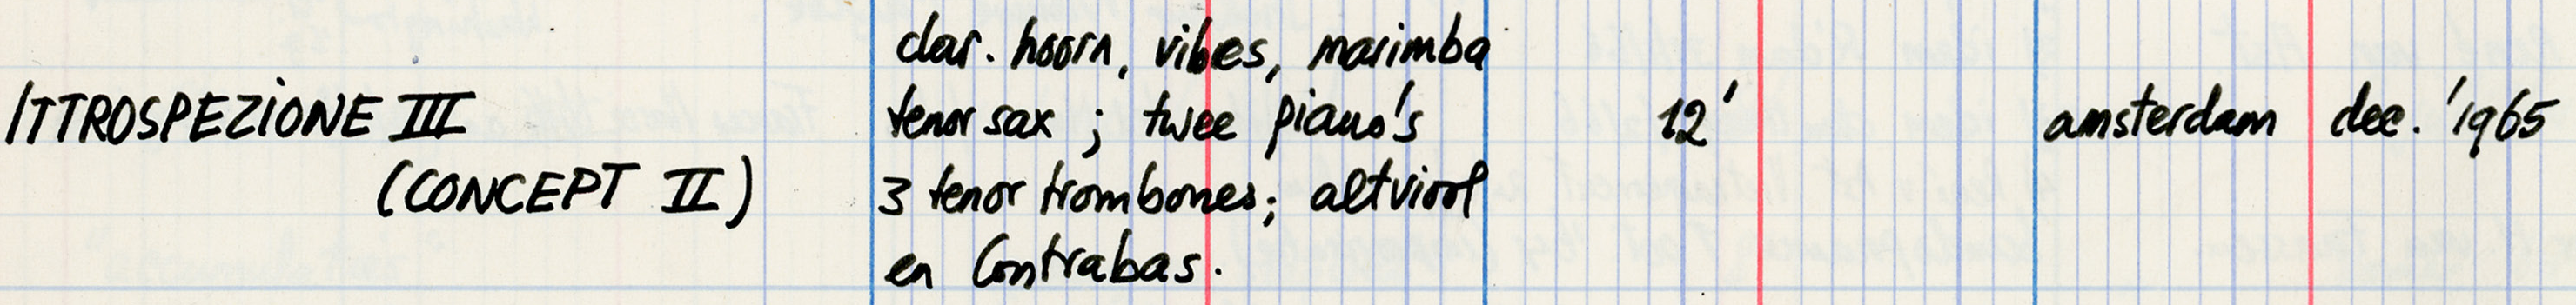 clar. hoorn, vibes, marimba
ITTROSPEZIONE III tenor sax ; twee piano's 12' amsterdam dec. '1965
(CONCEPT II) 3 tenor trombones; altviool
en Contrabas.